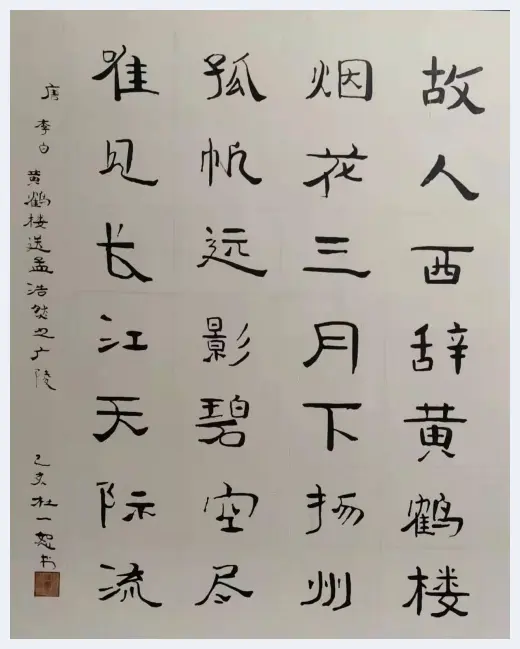 故人西辞黄鹤楼
烟花三月下扬州
孤帆远影碧空尽
唯见长江天际流
唐 李白 黄鹤楼送孟浩然之广陵 己亥 杜一恕书